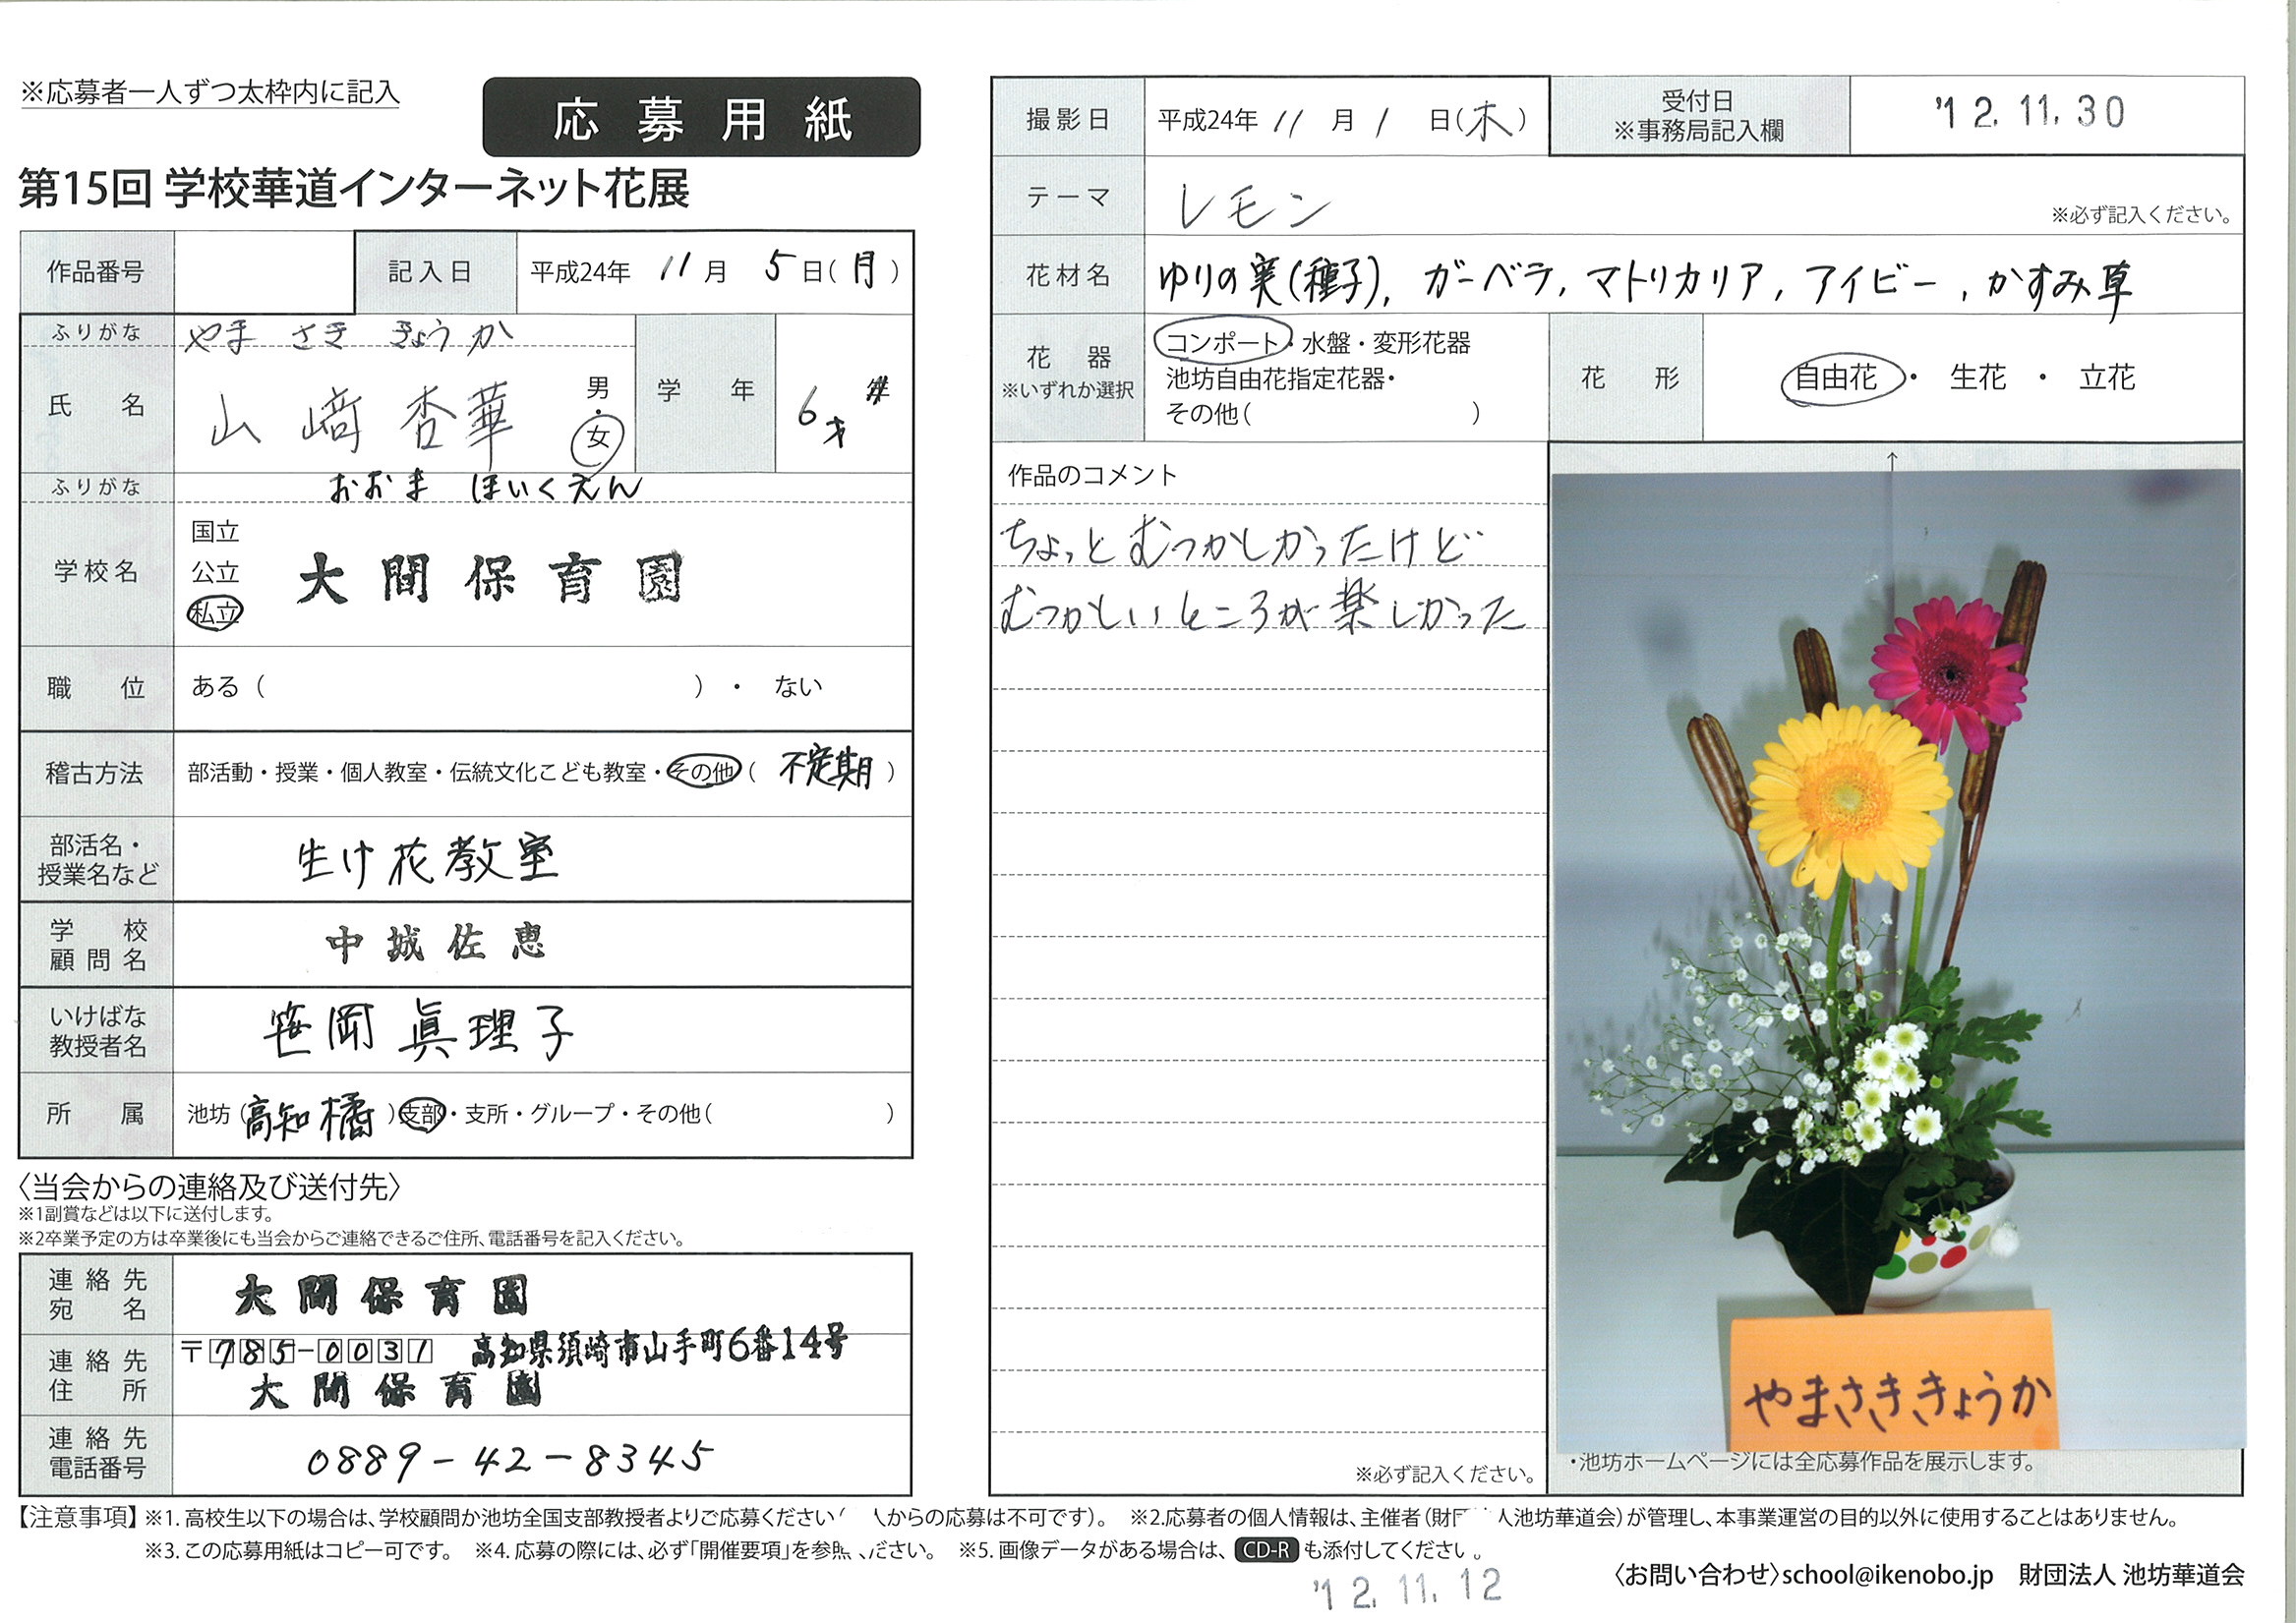 ※応募者一人ずつ太枠内に記入
応募用紙
第15回 学校華道インターネット花展
作品番号
記入日 平成24年 11月 5日(月)
ふりがな やま さき きょう か
氏名 山﨑杏華 男・女
学年 6才 年
ふりがな おおま ほいくえん
学校名 国立 公立 私立 大間保育園
職位 ある( )・ない
稽古方法 部活動・授業・個人教室・伝統文化こども教室・その他(不定期)
部活名・授業名など 生け花教室
学校顧問名 中城佐恵
いけばな教授者名 笹岡眞理子
所属 池坊(高知橘)支部・支所・グループ・その他( )
〈当会からの連絡及び送付先〉
※1副賞などは以下に送付します。
※2卒業予定の方は卒業後にも当会からご連絡できるご住所、電話番号を記入ください。
連絡先宛名 大間保育園
連絡先住所 〒785-0031 高知県須崎市山手町6番14号
大間保育園
連絡先電話番号 0889-42-8345
撮影日 平成24年 11月 1日(木)
受付日 ※事務局記入欄 '12.11.30
テーマ レモン ※必ず記入ください。
花材名 ゆりの実(種子), ガーベラ, マトリカリア, アイビー, かすみ草
花器 ※いずれか選択 コンポート・水盤・変形花器
池坊自由花指定花器・
その他( )
花形 自由花・生花・立花
作品のコメント
ちょっとむつかしかったけど
むつかしいところが楽しかった
※必ず記入ください。
↑
やまさききょうか
・池坊ホームページには全応募作品を展示します。
【注意事項】※1. 高校生以下の場合は、学校顧問か池坊全国支部教授者よりご応募ください( 人からの応募は不可です)。 ※2.応募者の個人情報は、主催者(財団 人池坊華道会)が管理し、本事業運営の目的以外に使用することはありません。
※3. この応募用紙はコピー可です。 ※4. 応募の際には、必ず「開催要項」を参照ください。 ※5. 画像データがある場合は、CD-Rも添付してください。
〈お問い合わせ〉school@ikenobo.jp 財団法人 池坊華道会
'12.11.12